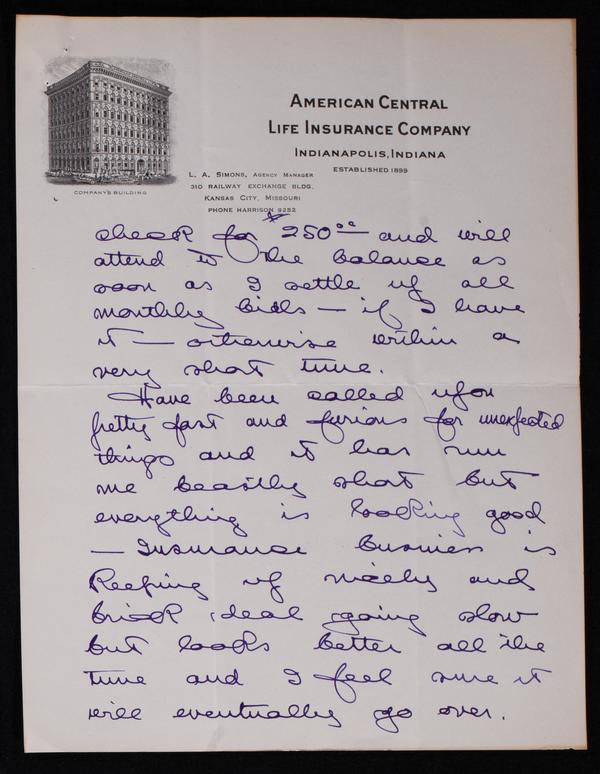 AMERICAN CENTRAL
LIFE INSURANCE COMPANY
INDIANAPOLIS, INDIANA
ESTABLISHED 1899
L. A. SIMONS, AGENCY MANAGER
310 RAILWAY EXCHANGE BLDG.
KANSAS CITY, MISSOURI
PHONE HARRISON 9252
COMPANY'S BUILDING
check for $250.00 and will
attend to the balance as
soon as I settle up all
monthly bills — if I have
it — otherwise within a
very short time.
Have been called upon
pretty fast and furious for unexpected
things and it has run
me beastly short but
everything is looking good
— Insurance business is
keeping up nicely and
brick deal going slow
but looks better all the
time and I feel sure it
will eventually go over.